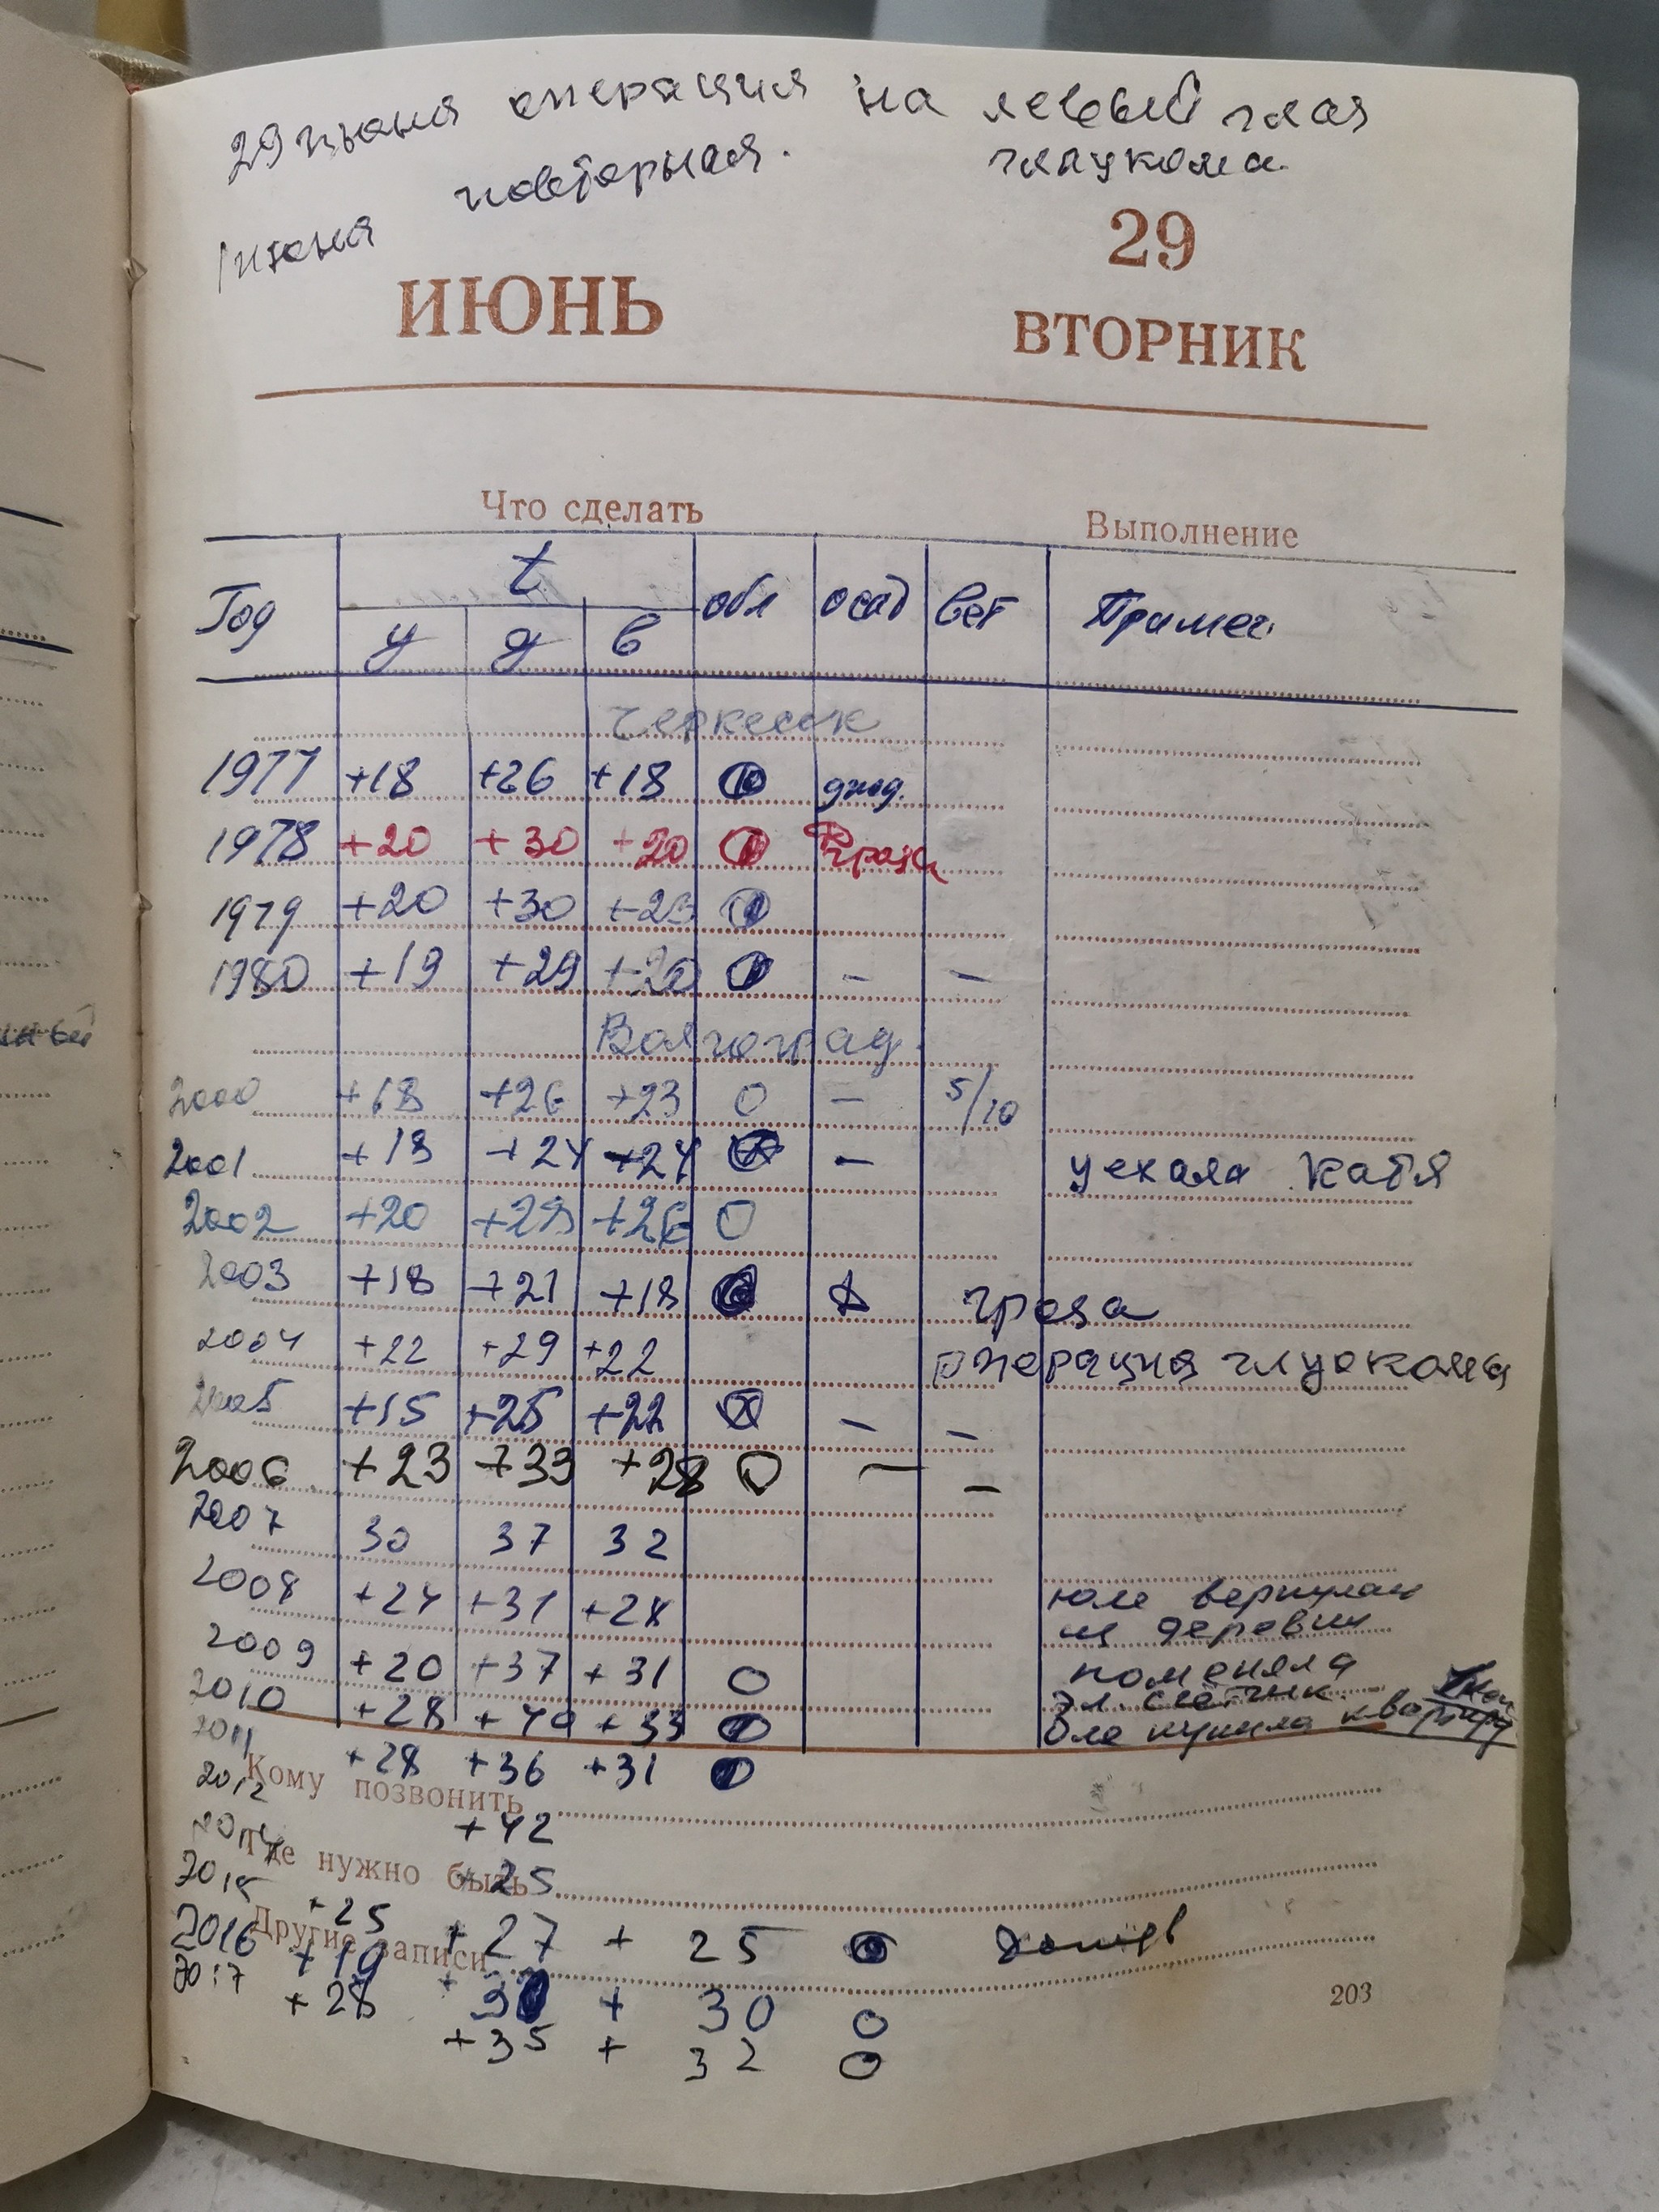 29 июня операция на левый глаз
повторная. глаукома.
июня
29
ИЮНЬ
ВТОРНИК
Что сделать Выполнение
Год t обл осад вет Примеч
у д в
Черкесск
1977 +18 +26 +18 дожд.
1978 +20 +30 +20 гроза
1979 +20 +30
1980 +19 +29 +20 — —
Волгоград.
2000 +18 +26 +23 0 — 5/10
2001 +18 +24 +24 — уехала Катя
2002 +20 +28 +26 0
2003 +18 +21 +18 гроза
2004 +22 +29 +22 операция глуокома
2005 +15 +25 +22 — —
2006 +23 +33 +28 0 — —
2007 30 37 32
2008 +24 +31 +28 юле вернулась
из деревни
2009 +20 +37 +31 0 поменяла
эл. счётчик
2010 +28 +40 +33 Оле купила квартиру
2011 +28 +36 +31
Кому позвонить
2012 +42
2014
Где нужно быть +25
2015 +25 +27 + 25 дождь
Другие записи
2016 +19 + 30 0
2017 +28 +35 + 32 0
203